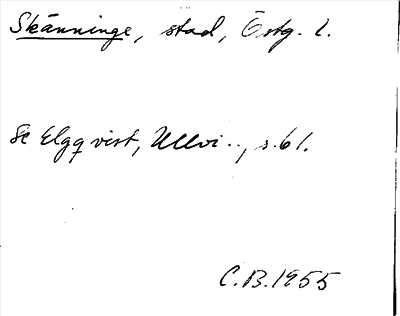 Skänninge, stad, Östg. l.
Se Elgqvist, Ullvi.., s. 61.
C.B. 1955